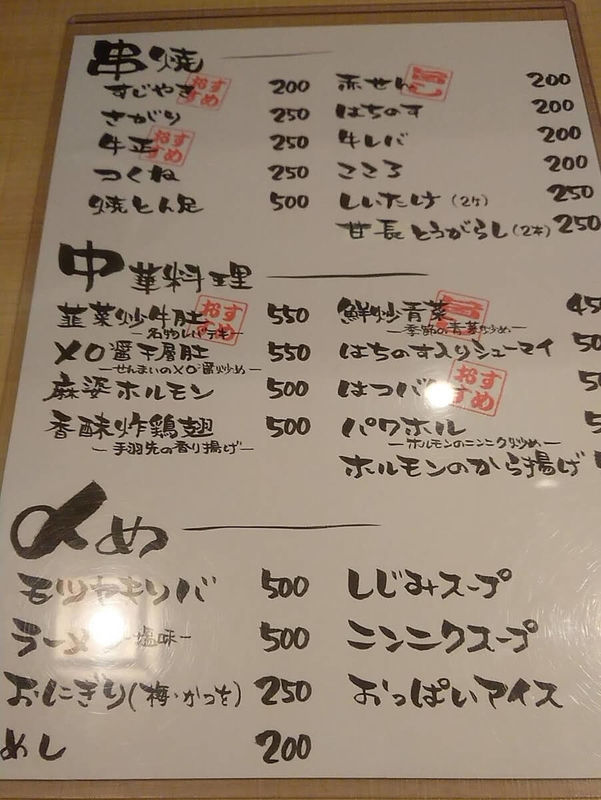 串焼
すじやき おすすめ 200
さがり 250
牛正 おすすめ 250
つくね 250
焼とん足 500
赤せん 200
はちのす 200
牛レバ 200
こころ 200
しいたけ(2ケ) 250
甘長とうがらし(2本) 250
中華料理
韮菜炒牛肚 おすすめ 550
ー名物レバテキー
XO醤千層肚 550
ーせんまいのXO醤炒めー
麻婆ホルモン 500
香酥炸鶏翅 500
ー手羽先の香り揚げー
鮮炒青菜 45
ー季節の青菜炒めー
はちのす入りシューマイ 50
はつバ おすすめ 5
パワホル 5
ーホルモンのニンニク炒めー
ホルモンのから揚げ
〆め
モツヤキリバ 500
ラーメン ー塩味ー 500
おにぎり(梅・かつを) 250
めし 200
しじみスープ
ニンニクスープ
おっぱいアイス